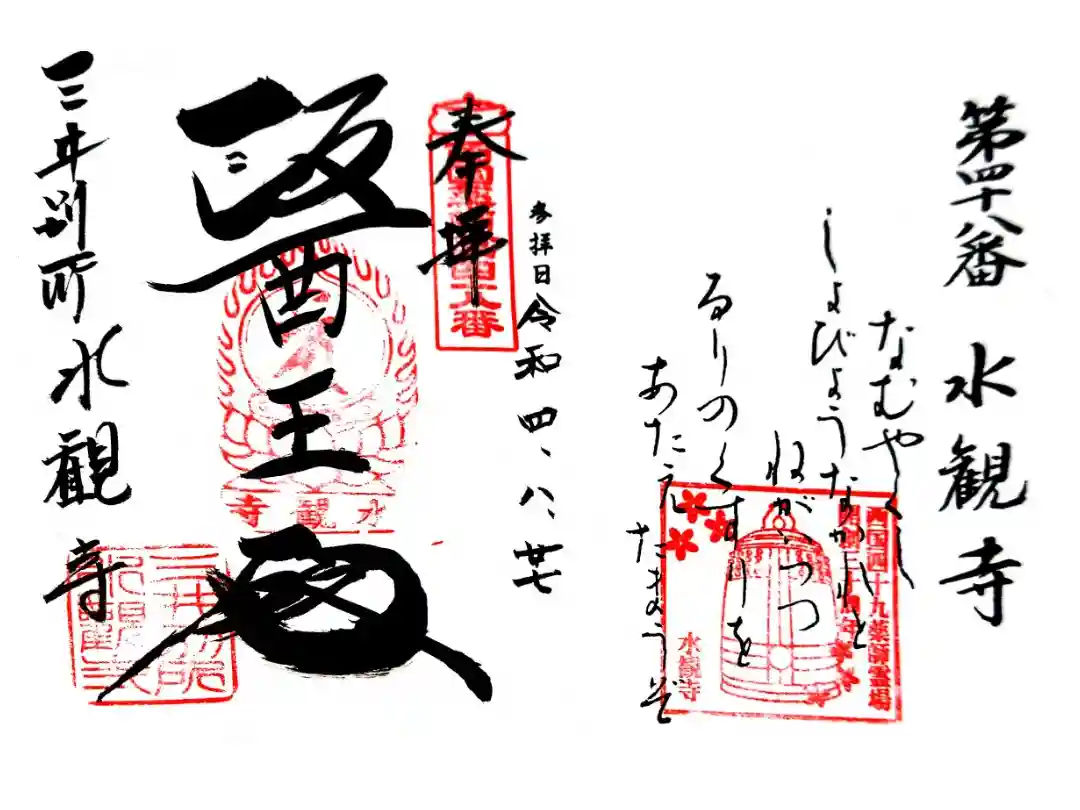 第四十八番 水観寺
なむやくし
しょびょうなかれと
ねがいつつ
るりのくすりを
あたえたまうぞ
西国四十九薬師霊場
水観寺
参拝日令和四、八、廿七
奉拝
醫王殿
水観寺
三井別所 水観寺